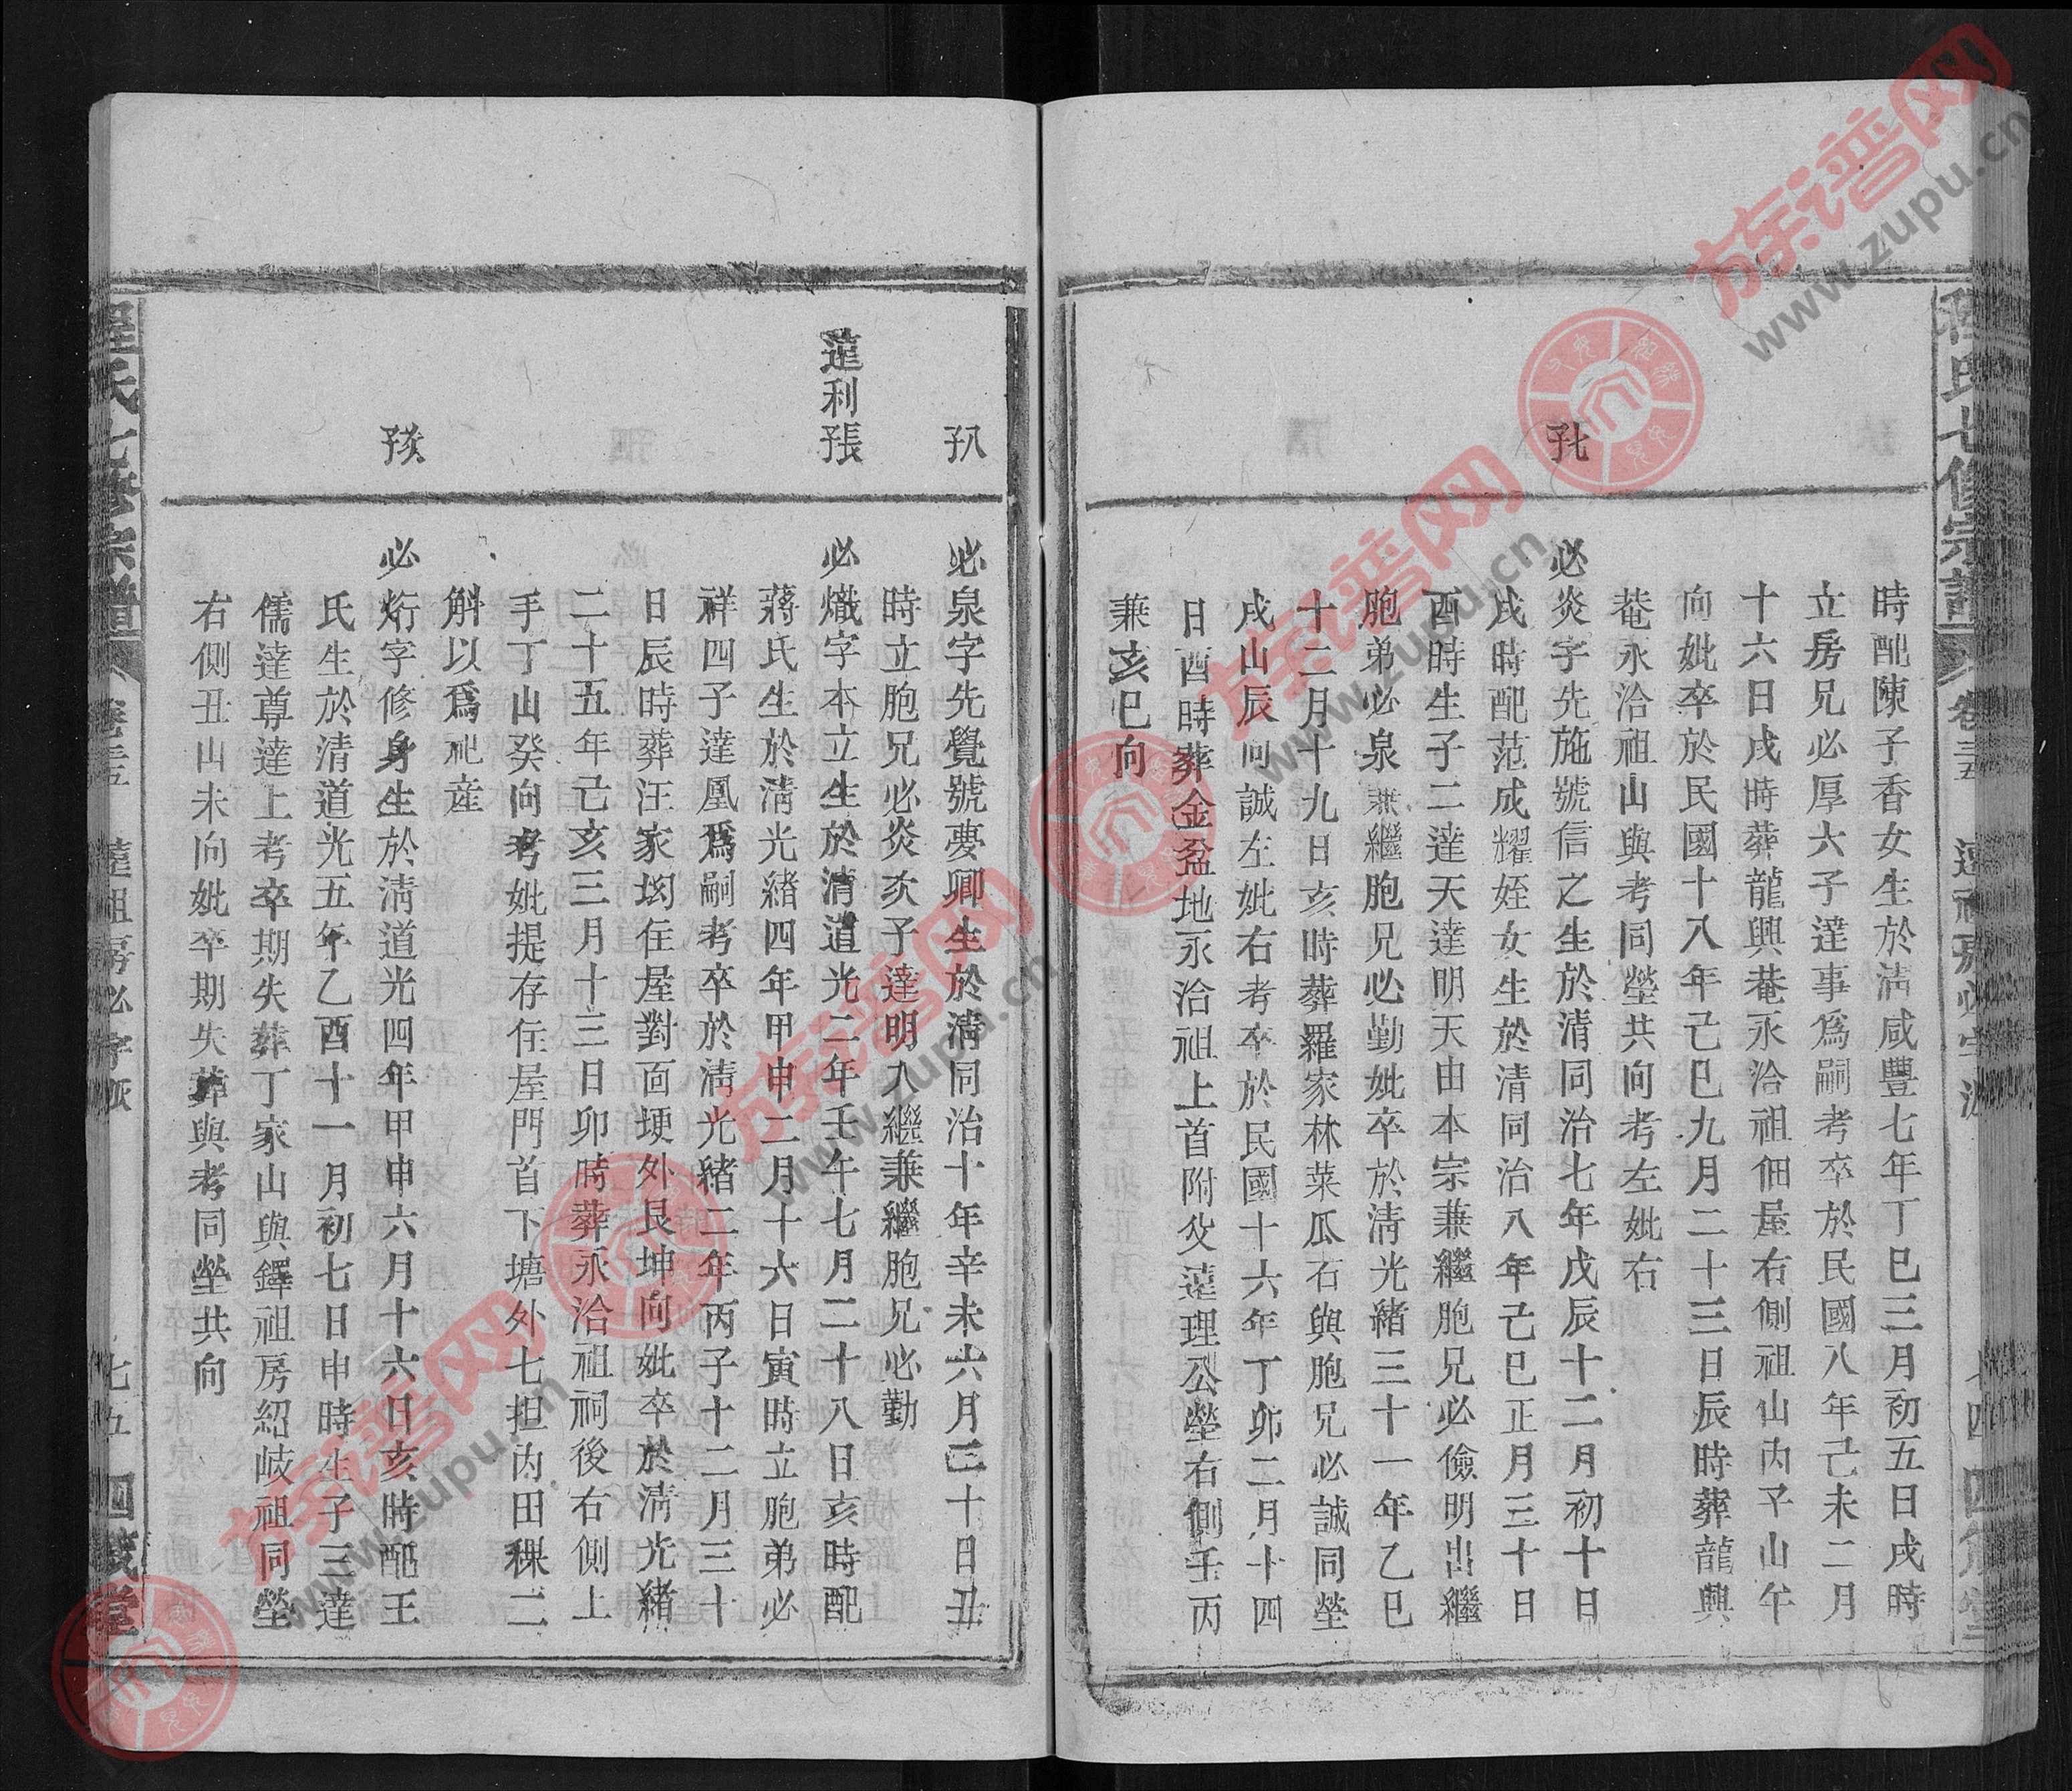 時配陳子香女生於清咸豐七年丁巳三月初五日戌時
立房兄必厚六子達事爲嗣考卒於民國八年己未二月
十六日戌時葬龍興菴永洽祖佃屋右側祖山丙子山午
向妣卒於民國十八年己巳九月二十三日辰時葬龍興
菴永洽祖山與考同塋共向考左妣右
必炎字先施號信之生於清同治七年戊辰十二月初十日
戌時配范成耀姪女生於清同治八年己巳正月三十日
酉時生子二達天達明天由本宗兼繼胞兄必儉明出繼
胞弟必泉兼繼胞兄必勤妣卒於清光緒三十一年乙巳
十二月十九日亥時葬羅家林菜瓜石與胞兄必誠同塋
戌山辰向誠左妣右考卒於民國十六年丁卯二月十四
日酉時葬金盆地永洽祖上首附父遠理公塋右側壬丙
兼亥巳向
必泉字先覺號夢卿生於清同治十年辛未六月三十日丑
時立胞兄必炎次子達明入繼兼繼胞兄必勤
遠利張
必熾字本立生於清道光二年壬午七月二十八日亥時配
蔣氏生於清光緒四年甲申二月十六日寅時立胞弟必
祥四子達凰爲嗣考卒於清光緒二年丙子十二月三十
日辰時葬汪家坳住屋對面埂外艮坤向妣卒於清光緒
二十五年己亥三月十三日卯時葬永洽祖祠後右側上
手丁山癸向考妣提存住屋門首下塘外七担內田稞二
斛以爲祀産
必烆字修身生於清道光四年甲申六月十六日亥時配王
氏生於清道光五年乙酉十一月初七日申時生子三達
儒達尊達上考卒期失葬丁家山與鐸祖房紹岐祖同塋
右側丑山未向妣卒期失葬與考同塋共向
程氏七修宗譜
卷三五
達祖房必字派
七五
四箴堂